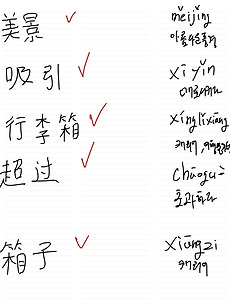 美景 měijǐng
아름다운 풍경
吸引 xīyǐn
매료시키다
行李箱 xínglǐxiāng
캐리어,
超过 chāoguò
초과하다
箱子 xiāngzi
캐리어